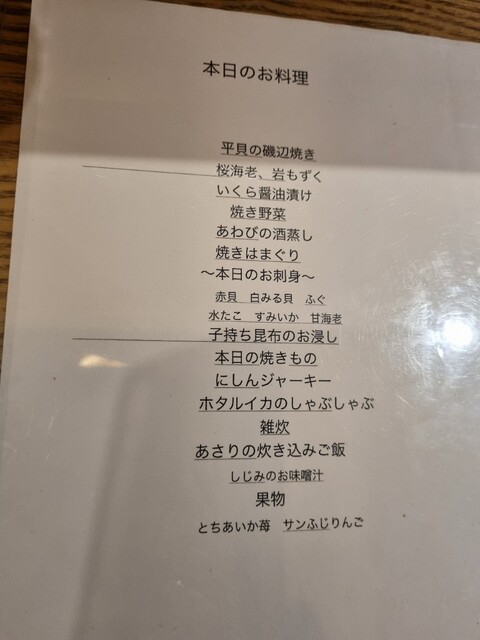 本日のお料理
平貝の磯辺焼き
桜海老、岩もずく
いくら醤油漬け
焼き野菜
あわびの酒蒸し
焼きはまぐり
〜本日のお刺身〜
赤貝　白みる貝　ふぐ
水たこ　すみいか　甘海老
子持ち昆布のお浸し
本日の焼きもの
にしんジャーキー
ホタルイカのしゃぶしゃぶ
雑炊
あさりの炊き込みご飯
しじみのお味噌汁
果物
とちあいか苺　サンふじりんご